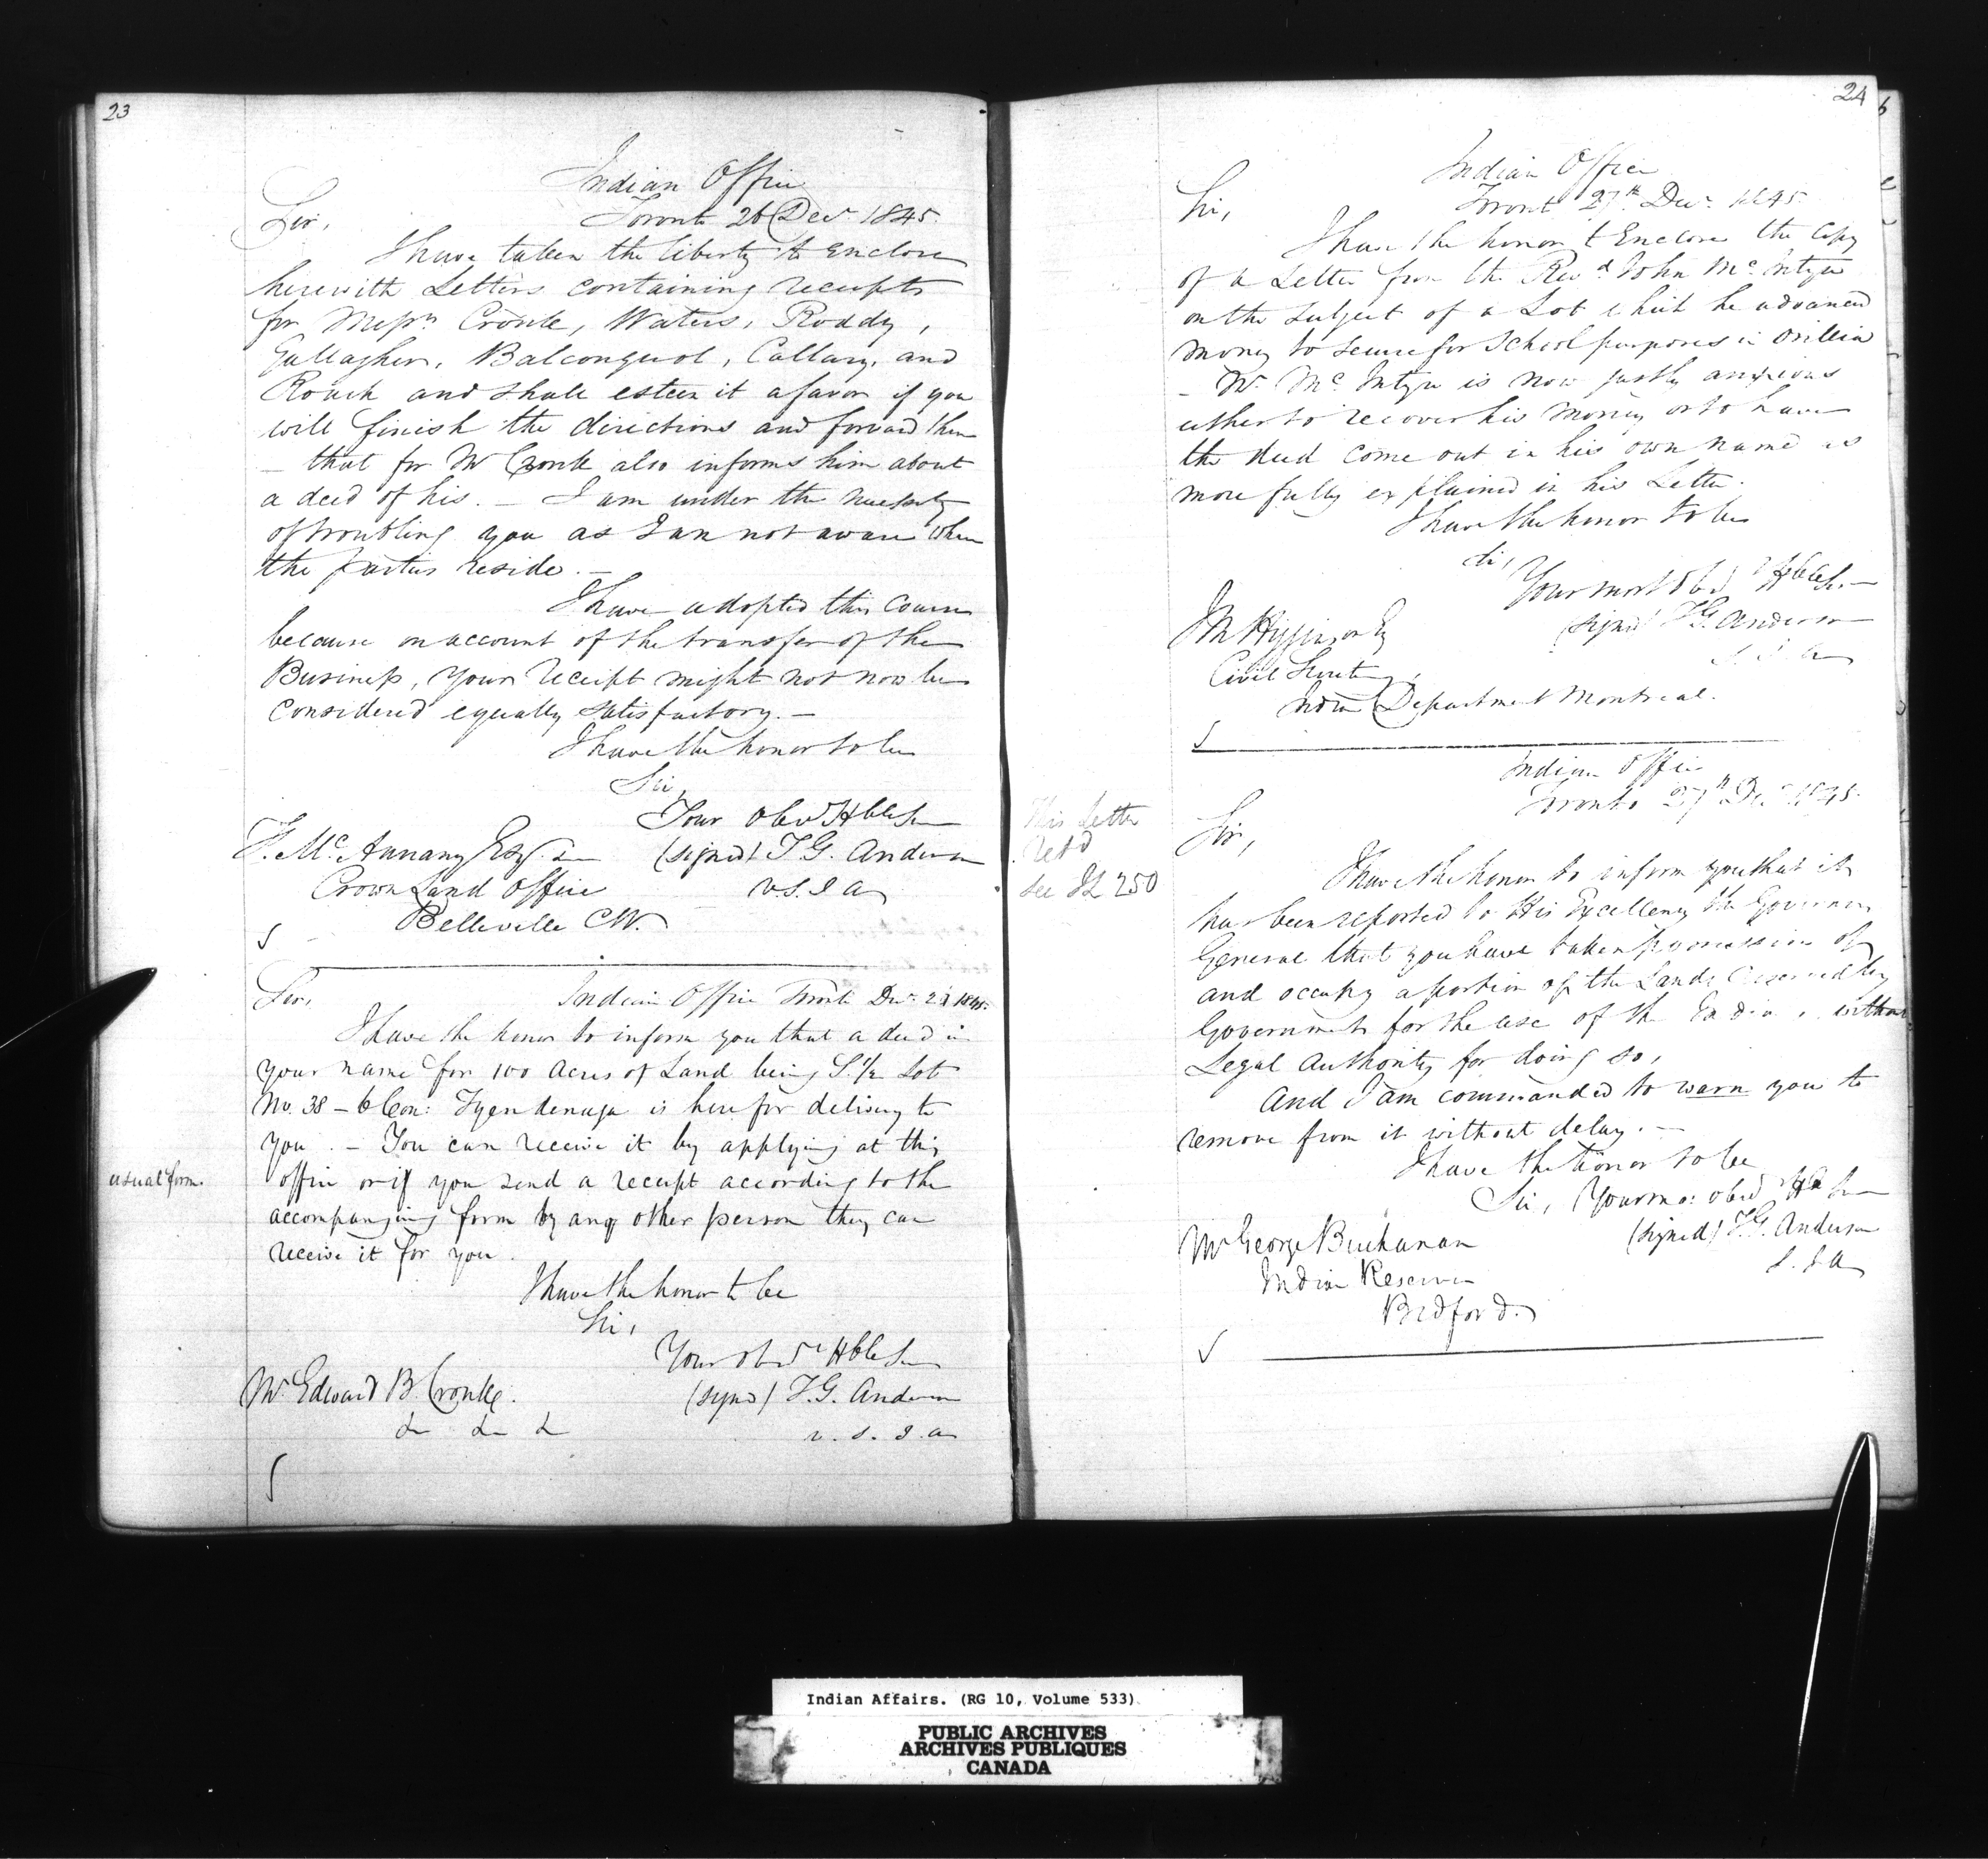 23
Indian Office
Toronto 26 Decr 1845.
Sir,
I have taken the liberty to Enclose
herewith Letters containing receipts
for Messrs Cronk, Waters, Roddy,
Gallagher, Balconquol, Callary, and
Roach and shall esteem it a favor if you
will finish the directions and forward them
– that for Mr Cronk also informs him about
a deed of his. – I am under the necessity
of troubling you as I am not aware where
the parties reside. –
I have adopted this course
because on account of the transfer of the
Business, your receipt might not now be
considered equally satisfactory. –
I have the honor to be
Sir,
Your Obedt Hble Sr
T. McAnnany Esqr (signed) T.G. Anderson
Crown Land Office V.S.I.A
Belleville C.W.
Sir, Indian Office Toronto Decr 1845.
I have the honor to inform you that a deed in
your name for 100 Acres of Land being S. 1/2 Lot
No. 38 – 6 Con: Tyendenaga is here for delivery to
you. – You can receive it by applying at this
usual form.
office or if you send a receipt according to the
accompanying form by any other person they can
receive it for you.
I have the honor to be
Sir,
Your Obedt Hble Sr
Mr Edward B. Cronk. (signd) T.G. Anderson
V.S.I.A
24
Indian Office
Toronto 27th Decr 1845.
Sir,
I have the honor to Enclose the Copy
of a Letter from the Revd John McIntyre
on the subject of a Lot which he advanced
money to secure for School purposes in Orillia
– Mr McIntyre is now justly anxious
either to recover his money or to have
the deed come out in his own name as
more fully explained in his Letter.
I have the honor to be
Sir,
Your most Obd Hble Sr.
J M Higginson Esq (signd) T.G. Anderson
Civil Secretary, S.I.A
Indian Department Montreal.
Indian Office
Toronto 27th Decr 1845.
This Letter
Retd
see IL 250
Sir,
I have the honor to inform you that it
has been reported to His Excellency the Governor
General that you have taken possession of
and occupy a portion of the Lands reserved by
Government for the use of the Indians, without
Legal Authority for doing so,
And I am commanded to warn you to
remove from it without delay. –
I have the honor to be
Sir, Your mo: obed Hble Sr
Mr George Buchanan (signed) T.G. Anderson
Indian Reserve S.I.A
Bedford.
Indian Affairs. (RG 10, Volume 533)
PUBLIC ARCHIVES
ARCHIVES PUBLIQUES
CANADA